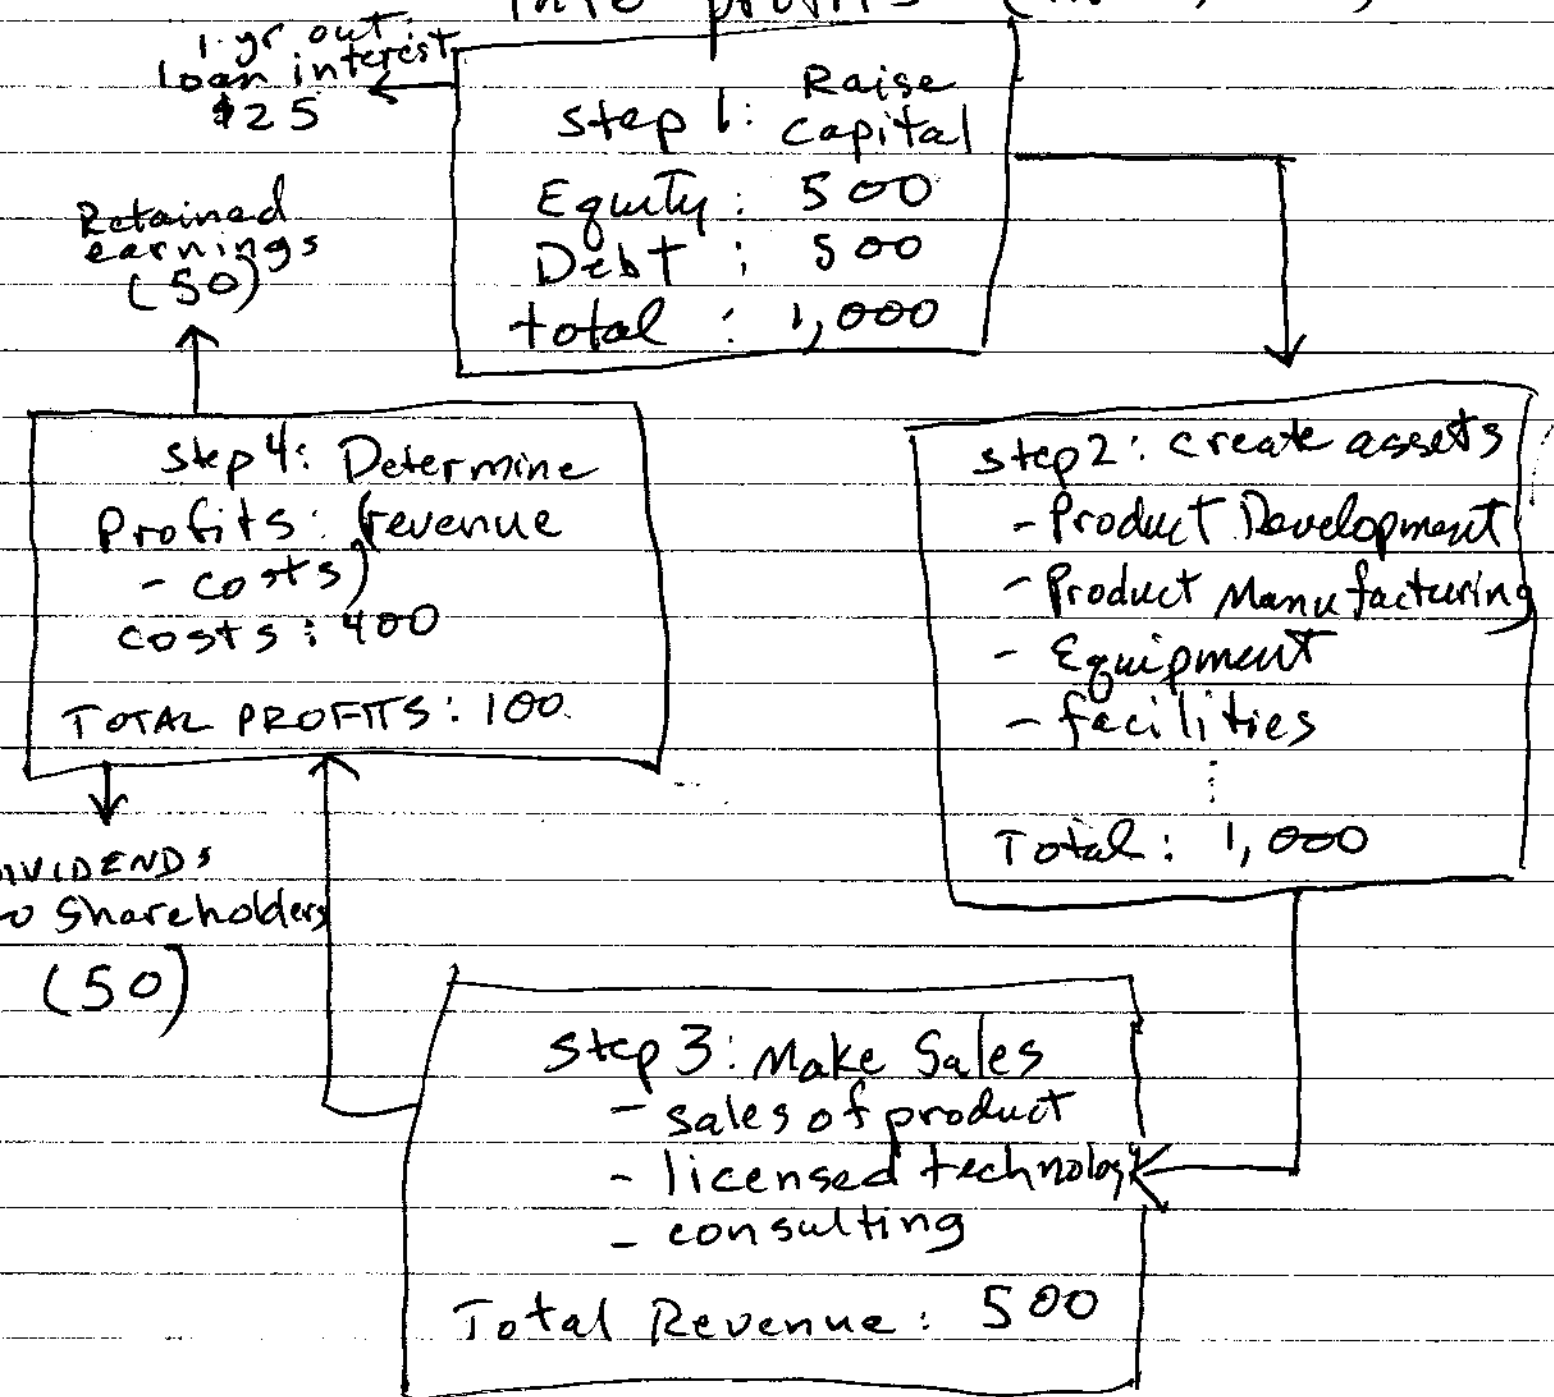 into profits
1 yr out
loan interest
$25
Step 1: Raise
Capital
Equity: 500
Debt: 500
total: 1,000
Retained
earnings
(50)
Step 4: Determine
Profits: (revenue
- costs)
costs: 400
TOTAL PROFITS: 100
Step 2: create assets
- Product Development
- Product Manufacturing
- Equipment
- facilities
Total: 1,000
IVIDENDS
o Shareholders
(50)
Step 3: Make Sales
- sales of product
- licensed technology
- consulting
Total Revenue: 500